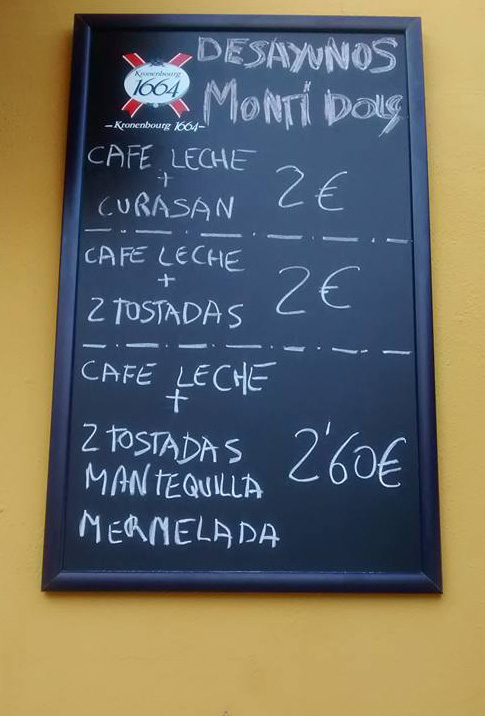 Kronenbourg
1664
– Kronenbourg 1664 –
DESAYUNOS
MONTI DOLÇ
CAFE LECHE
+
CURASAN
2 €
CAFE LECHE
+
2 TOSTADAS
2 €
CAFE LECHE
+
2 TOSTADAS
MANTEQUILLA
MERMELADA
2'60€